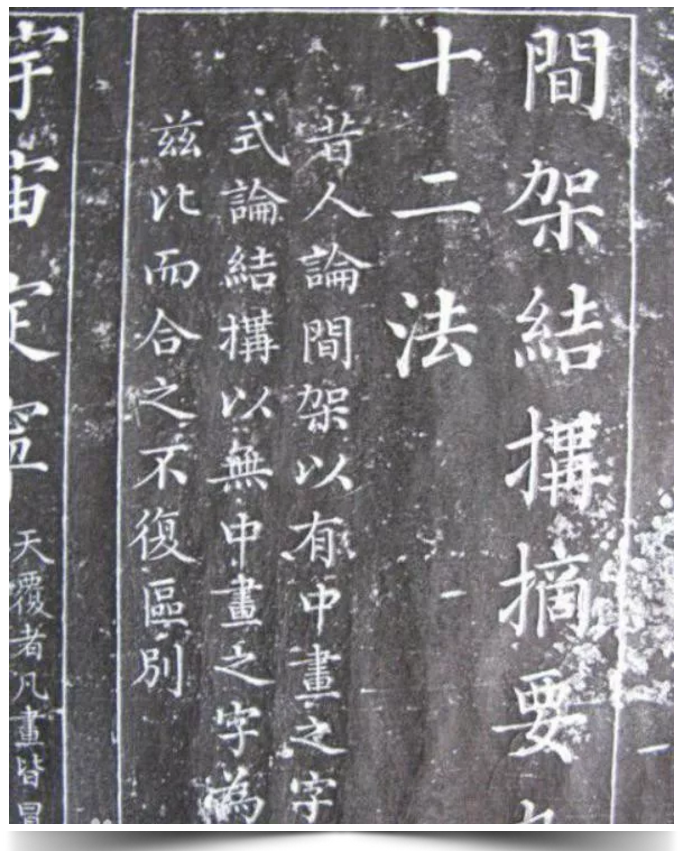 間架結搆摘要九
十二法
昔人論間架以有中畫之字
式論結搆以無中畫之字為
茲比而合之不復區別
宇宙定寍
天覆者凡畫皆冒